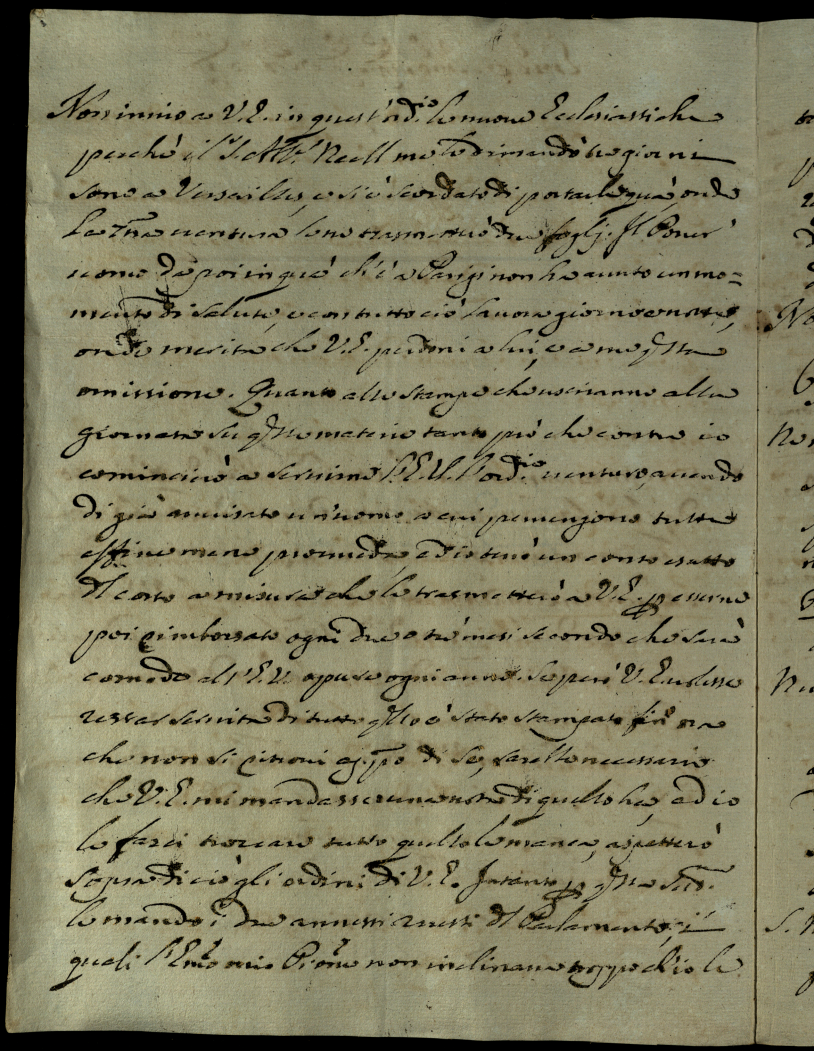 Non invio a V.E. in quest'ord.io le nuove Eclesiastiche
perché il S.r Ab.e Neell me le dimandò tre giorni
sono a Versailles, e si è scordato di portarle quà onde
la 7na ventura le ne trasmetterò due foglj. Il Pover'
uomo da poi in quà ch'è a Parigi non ha avuto un mo=
mento di salute, e con tutto ciò lavora giorno e notte,
onde merita che V.E. perdoni a lui, e a me q.sta
omissione. Quanto alle stampe che usciranno alla
giornata su q.ste materie tanto più che conta io
comincierò a servirne l'E.V. l'ord.io venturo, avendo
di già avvisato un'uomo a cui pervengono tutte
affine me ne proveda ed io terrò un conto esatto
del costo a misura che le trasmetterò a V.E. p esserne
poi rimborsato ogni due o tre mesi secondo che sarà
comodo all'E.V. opure ogni anno. Se però V.E. volesse
restar servita di tutto q.llo è stato stampato fin'ora
che non si ritrovi app.o di Se, sarebbe necessario
che V.E. mi mandasse una nota di quello ha, ed io
le farei trovare tutto quello le manca, aspetterò
sopra di ciò gli ordini di V.E. Intanto p q.sta Sett.
le mando i due annessi arresti del Parlamento, i
quali l'Emo mio P'rone non inclinava troppo ch'io le